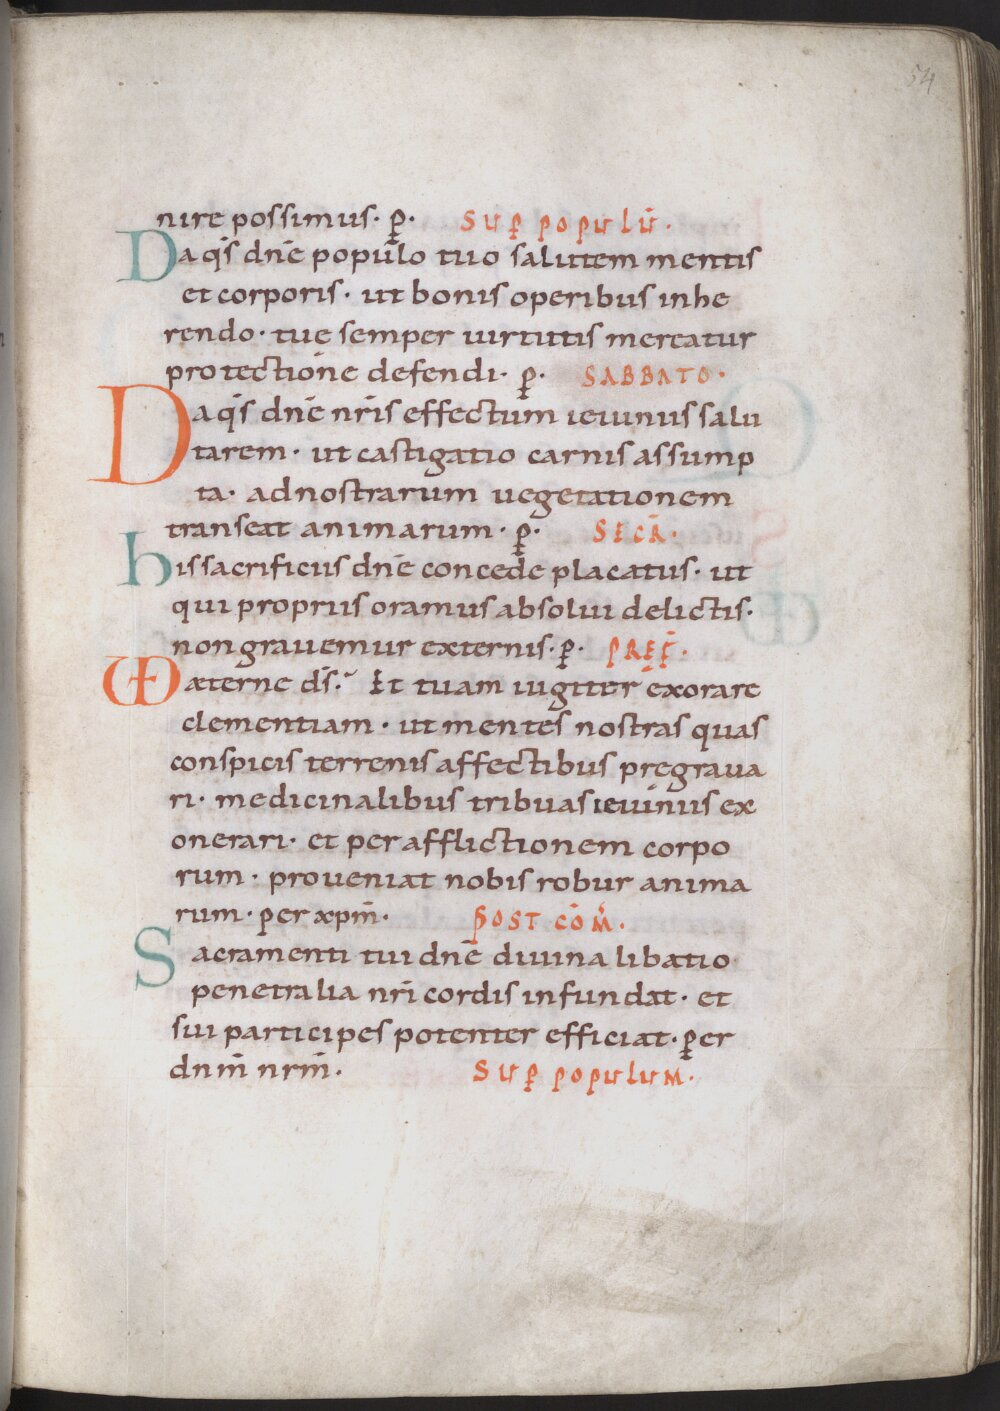 54
nire possimus· p̄· SUP POPULŪ·
Da qs̄ dnē populo tuo salutem mentis
et corporis· ut bonis operibus inhe
rendo· tue semper uirtutis mereatur
protectione defendi· p̄· SABBATO·
Da qs̄ dnē nrīs effectum ieiuniis salu
tarem· ut castigatio carnis assump
ta· ad nostrarum uegetationem
transeat animarum· p̄· SECR̄·
his sacrificiis dnē concede placatus· ut
qui propriis oramus absolui delictis·
non grauemur externis· p̄· PREF̄·
UD æterne ds̄· Et tuam iugiter exorare
clementiam· ut mentes nostras quas
conspicis terrenis affectibus pregraua
ri· medicinalibus tribuas ieiuniis ex
onerari· et per afflictionem corpo
rum· proueniat nobis robur anima
rum· per xpm̄· POST COM̄·
Sacramenti tui dnē diuina libatio
penetralia nrī cordis infundat· et
sui participes potenter efficiat· per
dnm̄ nrm̄· SUP POPULUM·